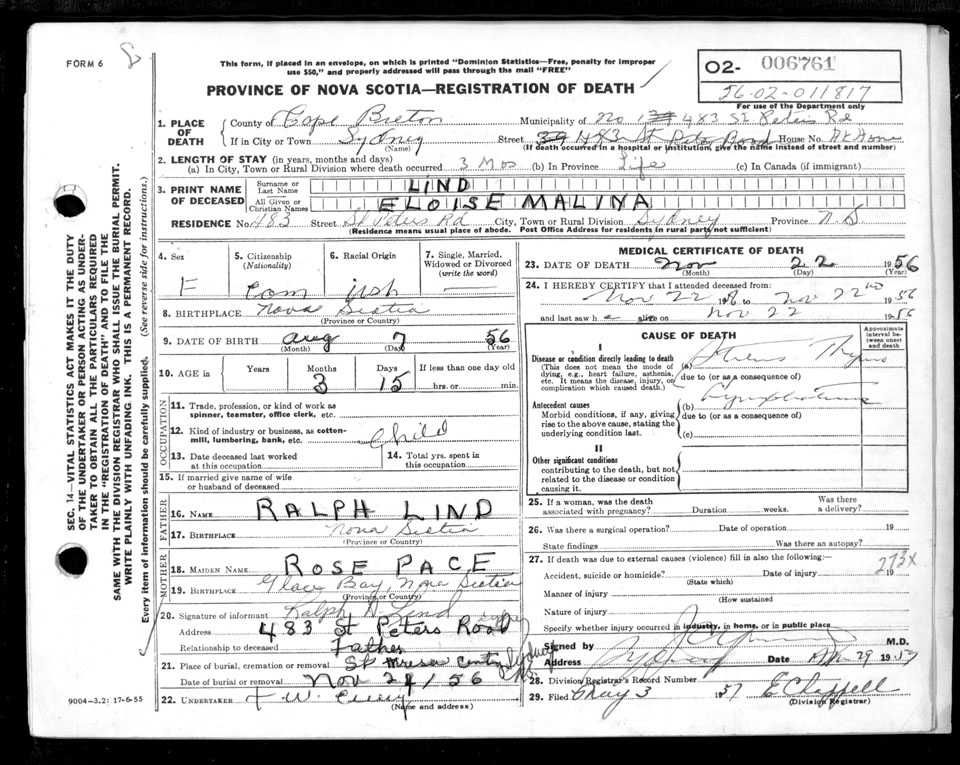 FORM 6
8
This form, if placed in an envelope, on which is printed "Dominion Statistics—Free, penalty for improper
use $50," and properly addressed will pass through the mail "FREE"
PROVINCE OF NOVA SCOTIA—REGISTRATION OF DEATH
O2- 006761
56-02-011817
For use of the Department only
SEC. 14—VITAL STATISTICS ACT MAKES IT THE DUTY
OF THE UNDERTAKER OR PERSON ACTING AS UNDER-
TAKER TO OBTAIN ALL THE PARTICULARS REQUIRED
IN THE "REGISTRATION OF DEATH" AND TO FILE THE
SAME WITH THE DIVISION REGISTRAR WHO SHALL ISSUE THE BURIAL PERMIT.
WRITE PLAINLY WITH UNFADING INK. THIS IS A PERMANENT RECORD.
Every item of information should be carefully supplied. (See reverse side for instructions.)
1. PLACE OF DEATH County of Cape Breton Municipality of No 483 St Peters Rd
If in City or Town Sydney (Name) Street 483 St Peters Road House No. At Home
(If death occurred in a hospital or institution, give the name instead of street and number)
2. LENGTH OF STAY (in years, months and days)
(a) In City, Town or Rural Division where death occurred 3 Mos (b) In Province Life (c) In Canada (if immigrant)
3. PRINT NAME OF DECEASED Surname or Last Name LIND
All Given or Christian Names ELOISE MALINA
RESIDENCE No. 483 Street St Peters Rd City, Town or Rural Division Sydney Province N.S
(Residence means usual place of abode. Post Office Address for residents in rural parts not sufficient)
4. Sex F
5. Citizenship (Nationality) Can
6. Racial Origin Irish
7. Single, Married, Widowed or Divorced (write the word) —
8. BIRTHPLACE Nova Scotia
(Province or Country)
9. DATE OF BIRTH Aug 7 1956
(Month) (Day) (Year)
10. AGE in Years Months 3 Days 15 If less than one day old hrs. or min.
OCCUPATION
11. Trade, profession, or kind of work as spinner, teamster, office clerk, etc.
12. Kind of industry or business, as cotton-mill, lumbering, bank, etc. Child
13. Date deceased last worked at this occupation
14. Total yrs. spent in this occupation
15. If married give name of wife or husband of deceased
FATHER
16. NAME RALPH LIND
17. BIRTHPLACE Nova Scotia
(Province or Country)
MOTHER
18. MAIDEN NAME ROSE PACE
19. BIRTHPLACE Glace Bay, Nova Scotia
(Province or Country)
20. Signature of informant Ralph Lind
Address 483 St Peters Road Sydney
Relationship to deceased Father
21. Place of burial, cremation or removal St Sydney
Date of burial or removal Nov 24/56
22. UNDERTAKER T W
(Name and address)
9004-3.2: 17-6-55
MEDICAL CERTIFICATE OF DEATH
23. DATE OF DEATH Nov 22 1956
(Month) (Day) (Year)
24. I HEREBY CERTIFY that I attended deceased from:
Nov 22 to Nov 22nd 1956
and last saw h alive on Nov 22 1956
CAUSE OF DEATH
Approximate interval between onset and death
I
Disease or condition directly leading to death
(This does not mean the mode of dying, e.g., heart failure, asthenia, etc. It means the disease, injury, or complication which caused death.)
(a) Status Thymo
due to (or as a consequence of)
Antecedent causes
Morbid conditions, if any, giving rise to the above cause, stating the underlying condition last.
(b) Lymphaticus
due to (or as a consequence of)
(c)
II
Other significant conditions
contributing to the death, but not related to the disease or condition causing it.
25. If a woman, was the death associated with pregnancy? Duration weeks. Was there a delivery?
26. Was there a surgical operation? Date of operation 19
State findings Was there an autopsy?
27. If death was due to external causes (violence) fill in also the following:—
273X
Accident, suicide or homicide? Date of injury 19
(State which)
Manner of injury
(How sustained
Nature of injury
Specify whether injury occurred in industry, in home, or in public place
Signed by M.D.
Address Sydney Date Apr 29 1957
28. Division Registrar's Record Number
29. Filed May 3 1957 E Chappell
(Division Registrar)